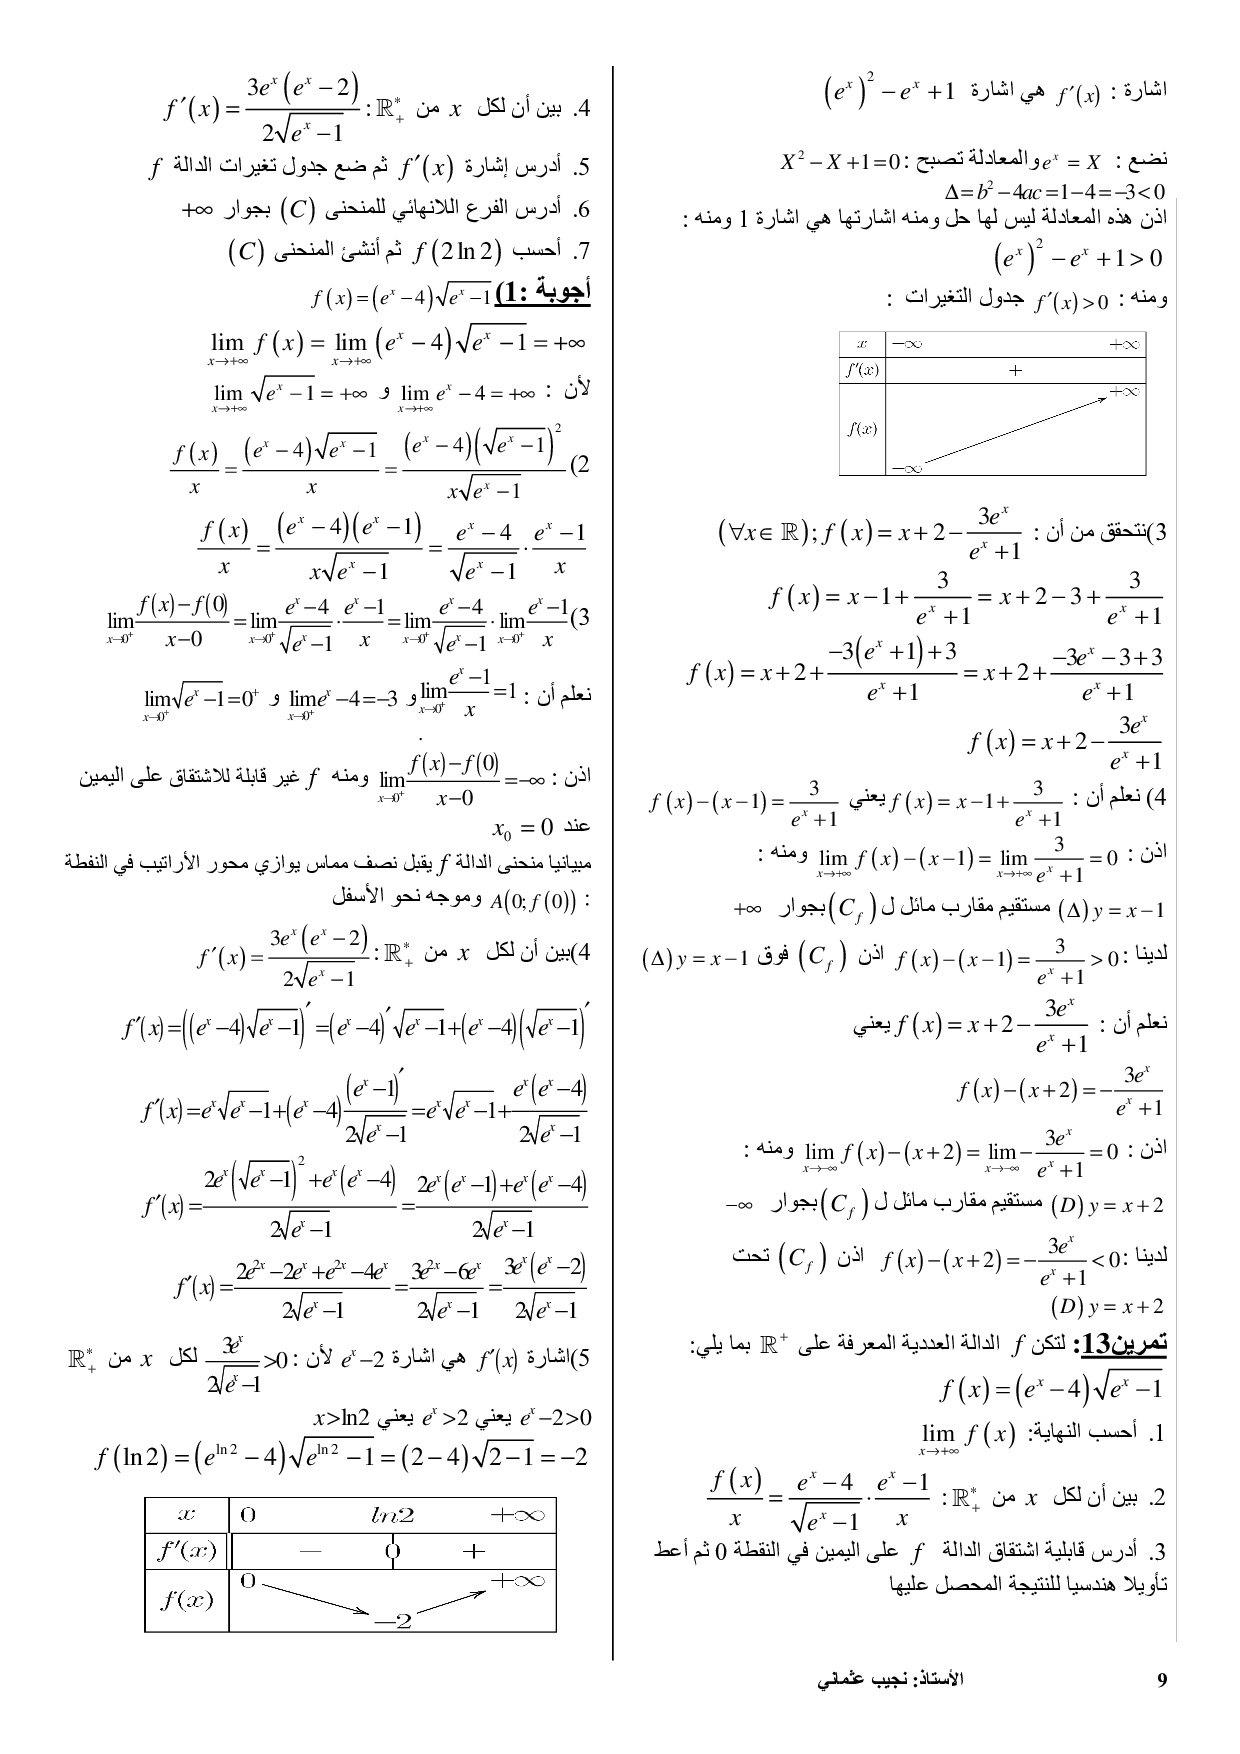 اشارة : f′(x) هي اشارة (eˣ)² − eˣ + 1
نضع : eˣ = X والمعادلة تصبح : X² − X + 1 = 0
Δ = b² − 4ac = 1 − 4 = −3 < 0
اذن هذه المعادلة ليس لها حل ومنه اشارتها هي اشارة 1 ومنه :
(eˣ)² − eˣ + 1 > 0
ومنه : f′(x) > 0 جدول التغيرات :
x −∞ +∞
f′(x) +
f(x) −∞ +∞
3)نتحقق من أن : (∀x ∈ ℝ); f(x) = x + 2 − 3eˣ/(eˣ + 1)
f(x) = x − 1 + 3/(eˣ + 1) = x + 2 − 3 + 3/(eˣ + 1)
f(x) = x + 2 + (−3(eˣ + 1) + 3)/(eˣ + 1) = x + 2 + (−3eˣ − 3 + 3)/(eˣ + 1)
f(x) = x + 2 − 3eˣ/(eˣ + 1)
4) نعلم أن : f(x) = x − 1 + 3/(eˣ + 1) يعني f(x) − (x − 1) = 3/(eˣ + 1)
اذن : lim_{x→+∞} f(x) − (x − 1) = lim_{x→+∞} 3/(eˣ + 1) = 0 ومنه :
(Δ) y = x − 1 مستقيم مقارب مائل ل (C_f) بجوار +∞
لدينا : f(x) − (x − 1) = 3/(eˣ + 1) > 0 اذن (C_f) فوق (Δ) y = x − 1
نعلم أن : f(x) = x + 2 − 3eˣ/(eˣ + 1) يعني
f(x) − (x + 2) = −3eˣ/(eˣ + 1)
اذن : lim_{x→−∞} f(x) − (x + 2) = lim_{x→−∞} −3eˣ/(eˣ + 1) = 0 ومنه :
(D) y = x + 2 مستقيم مقارب مائل ل (C_f) بجوار −∞
لدينا : f(x) − (x + 2) = −3eˣ/(eˣ + 1) < 0 اذن (C_f) تحت
(D) y = x + 2
تمرين13: لتكن f الدالة العددية المعرفة على ℝ⁺ بما يلي:
f(x) = (eˣ − 4)√(eˣ − 1)
1. أحسب النهاية: lim_{x→+∞} f(x)
2. بين أن لكل x من ℝ*₊ : f(x)/x = (eˣ − 4)/√(eˣ − 1) · (eˣ − 1)/x
3. أدرس قابلية اشتقاق الدالة f على اليمين في النقطة 0 ثم أعط
تأويلا هندسيا للنتيجة المحصل عليها
4. بين أن لكل x من ℝ*₊ : f′(x) = 3eˣ(eˣ − 2)/(2√(eˣ − 1))
5. أدرس إشارة f′(x) ثم ضع جدول تغيرات الدالة f
6. أدرس الفرع اللانهائي للمنحنى (C) بجوار +∞
7. أحسب f(2 ln 2) ثم أنشئ المنحنى (C)
أجوبة :1) f(x) = (eˣ − 4)√(eˣ − 1)
lim_{x→+∞} f(x) = lim_{x→+∞} (eˣ − 4)√(eˣ − 1) = +∞
لأن : lim_{x→+∞} eˣ − 4 = +∞ و lim_{x→+∞} √(eˣ − 1) = +∞
2) f(x)/x = (eˣ − 4)√(eˣ − 1)/x = (eˣ − 4)(√(eˣ − 1))²/(x√(eˣ − 1))
f(x)/x = (eˣ − 4)(eˣ − 1)/(x√(eˣ − 1)) = (eˣ − 4)/√(eˣ − 1) · (eˣ − 1)/x
3) lim_{x→0⁺} (f(x) − f(0))/(x − 0) = lim_{x→0⁺} (eˣ − 4)/√(eˣ − 1) · (eˣ − 1)/x = lim_{x→0⁺} (eˣ − 4)/√(eˣ − 1) · lim_{x→0⁺} (eˣ − 1)/x
نعلم أن : lim_{x→0⁺} (eˣ − 1)/x = 1 و lim_{x→0⁺} eˣ − 4 = −3 و lim_{x→0⁺} √(eˣ − 1) = 0⁺
.
اذن : lim_{x→0⁺} (f(x) − f(0))/(x − 0) = −∞ ومنه f غير قابلة للاشتقاق على اليمين
عند x₀ = 0
مبيانيا منحنى الدالة f يقبل نصف مماس يوازي محور الأراتيب في النفطة
: A(0; f(0)) وموجه نحو الأسفل
4)بين أن لكل x من ℝ*₊ : f′(x) = 3eˣ(eˣ − 2)/(2√(eˣ − 1))
f′(x) = ((eˣ − 4)√(eˣ − 1))′ = (eˣ − 4)′√(eˣ − 1) + (eˣ − 4)(√(eˣ − 1))′
f′(x) = eˣ√(eˣ − 1) + (eˣ − 4)(eˣ − 1)′/(2√(eˣ − 1)) = eˣ√(eˣ − 1) + eˣ(eˣ − 4)/(2√(eˣ − 1))
f′(x) = (2eˣ(√(eˣ − 1))² + eˣ(eˣ − 4))/(2√(eˣ − 1)) = (2eˣ(eˣ − 1) + eˣ(eˣ − 4))/(2√(eˣ − 1))
f′(x) = (2e²ˣ − 2eˣ + e²ˣ − 4eˣ)/(2√(eˣ − 1)) = (3e²ˣ − 6eˣ)/(2√(eˣ − 1)) = 3eˣ(eˣ − 2)/(2√(eˣ − 1))
5)اشارة f′(x) هي اشارة eˣ − 2 لأن : 3eˣ/(2√(eˣ − 1)) > 0 لكل x من ℝ*₊
eˣ − 2 > 0 يعني eˣ > 2 يعني x > ln2
f(ln 2) = (e^{ln 2} − 4)√(e^{ln 2} − 1) = (2 − 4)√(2 − 1) = −2
x 0 ln2 +∞
f′(x) − 0 +
f(x) 0 −2 +∞
9 الأستاذ: نجيب عثماني